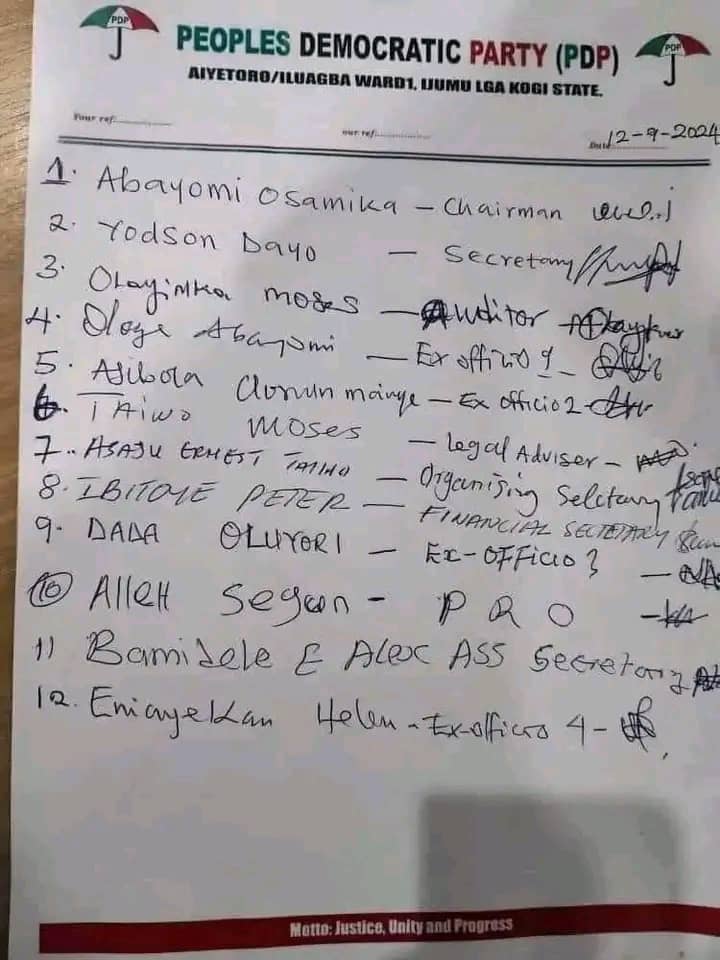 PDP
PDP
PEOPLES DEMOCRATIC PARTY (PDP)
AIYETORO/ILUAGBA WARD1, IJUMU LGA KOGI STATE.
Your ref:
our ref:
Date 12-9-2024
1. Abayomi Osamika - Chairman
2. Yodson Dayo - Secretary
3. Olayinka moses - Auditor
4. Ologe Abayomi - Ex officio 1
5. Ajibola - Ex officio 2
6. TAiwo moses - legal Adviser
7. ASAJU ERNEST TAIWO - Organising
8. IBITOYE PETER - FINANCIAL SECRETARY
9. DADA OLUYORI - Ex-OFFicio 3
10 AlleH Segun - P R O
11 Bamidele E Alex ASS Secretary
12. Eniayekan Helen - Ex-officio 4
Motto: Justice, Unity and Progress